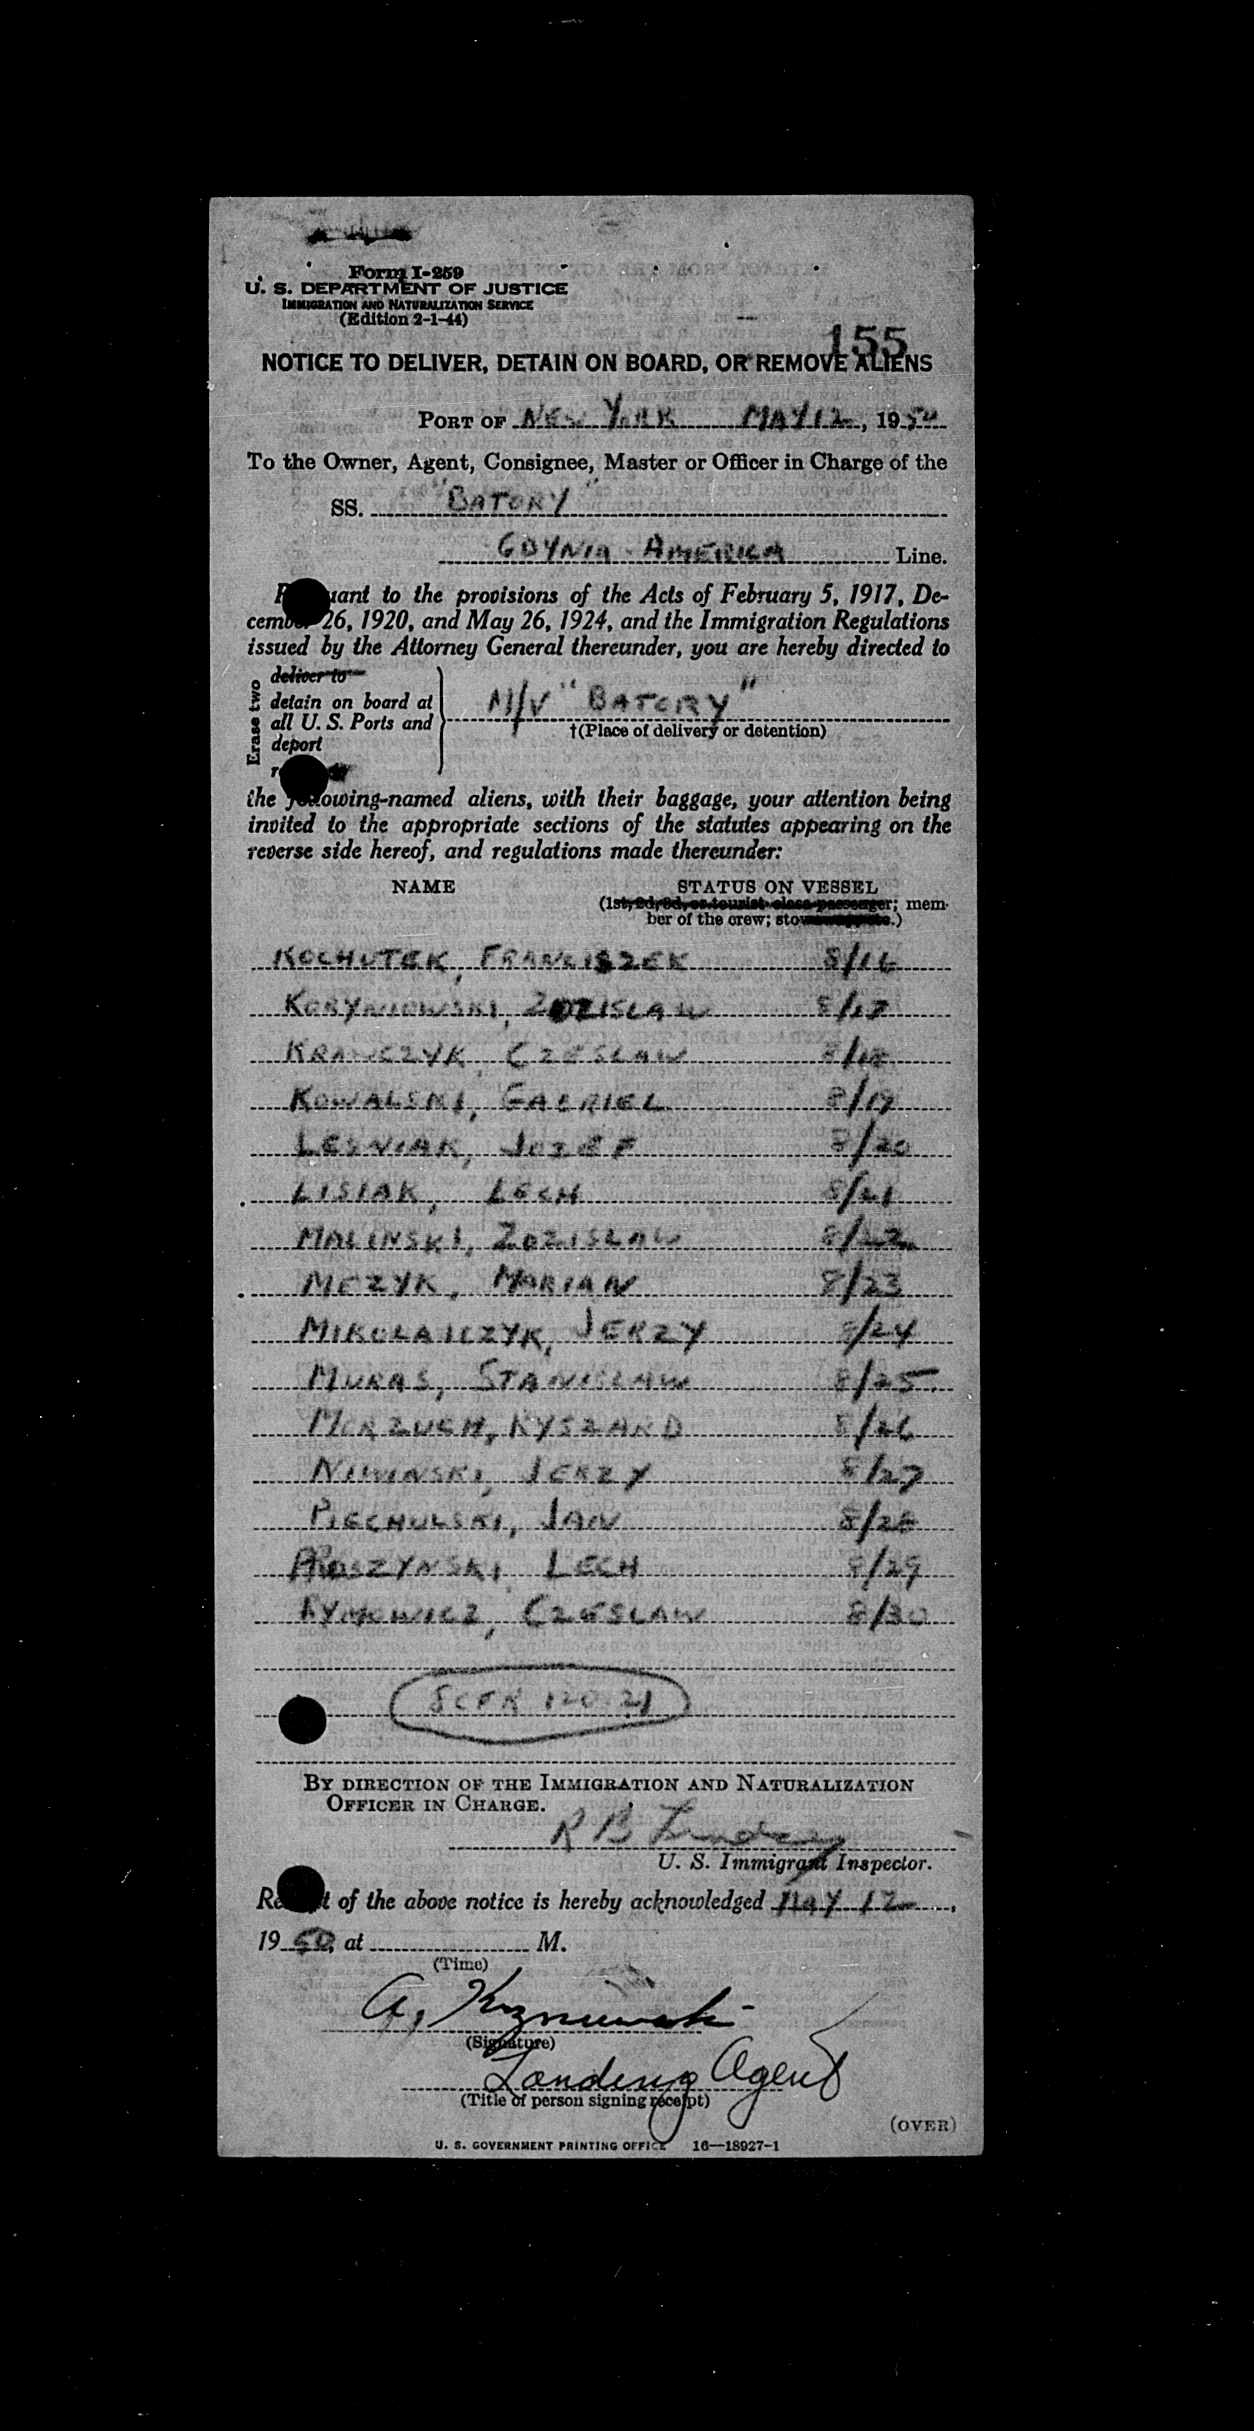 Form I-259
U. S. DEPARTMENT OF JUSTICE
IMMIGRATION AND NATURALIZATION SERVICE
(Edition 2-1-44)
155
NOTICE TO DELIVER, DETAIN ON BOARD, OR REMOVE ALIENS
PORT OF NEW YORK MAY 12, 1950
To the Owner, Agent, Consignee, Master or Officer in Charge of the
SS. "BATORY"
GDYNIA-AMERICA Line.
Pursuant to the provisions of the Acts of February 5, 1917, De-
cember 26, 1920, and May 26, 1924, and the Immigration Regulations
issued by the Attorney General thereunder, you are hereby directed to
Erase two
deliver to
detain on board at
all U. S. Ports and
deport
M/V "BATORY"
†(Place of delivery or detention)
the following-named aliens, with their baggage, your attention being
invited to the appropriate sections of the statutes appearing on the
reverse side hereof, and regulations made thereunder:
NAME STATUS ON VESSEL
(1st, 2d, 3d, or tourist class passenger; mem-
ber of the crew; .)
KOCHUTEK, FRANCISZEK 8/16
KORYNIOWSKI, ZDZISLAW 8/17
KRAWCZYK, CZESLAW 8/18
KOWALSKI, GABRIEL 8/19
LESNIAK, JOZEF 8/20
LISIAK, LECH 8/21
MALINSKI, ZDZISLAW 8/22
MEZYK, MARIAN 8/23
MIKOLAJCZYK, JERZY 8/24
MURAS, STANISLAW 8/25
RYSZARD 8/26
NIWINSKI, JERZY 8/27
PIECHULSKI, JAN 8/28
LECH 8/29
RYMOWICZ, CZESLAW 8/30
8CFR 120.21
BY DIRECTION OF THE IMMIGRATION AND NATURALIZATION
OFFICER IN CHARGE.
R B Lindsey
U. S. Immigrant Inspector.
Receipt of the above notice is hereby acknowledged MAY 12,
1950, at M.
(Time)
A.
(Signature)
Landing Agent
(Title of person signing receipt)
(OVER)
U. S. GOVERNMENT PRINTING OFFICE 16—18927-1